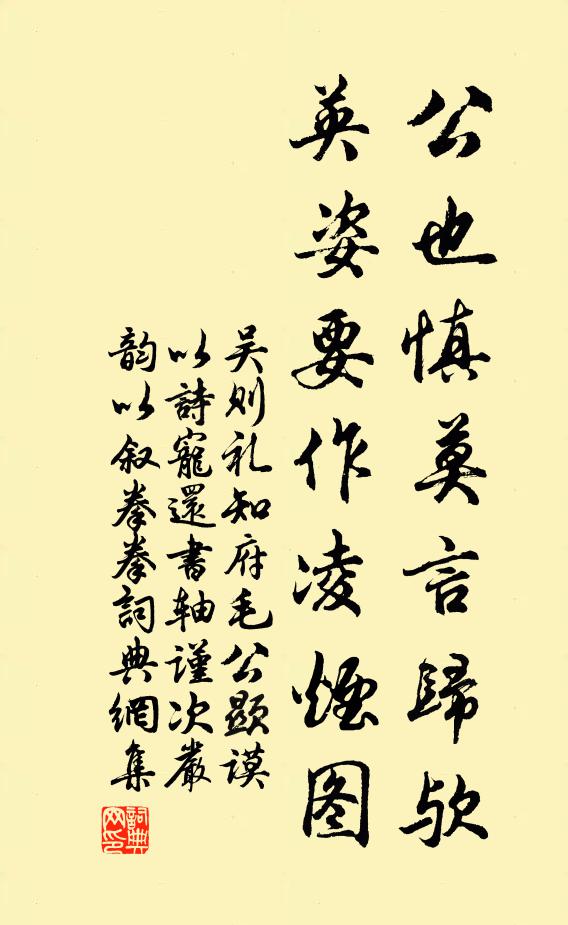 公也慎莫言歸欤
英姿要作凌煙图
吴则礼知府毛公顯谟
以詩寵還書轴謹次嚴
韵以叙拳拳詞典網集
詞典网印